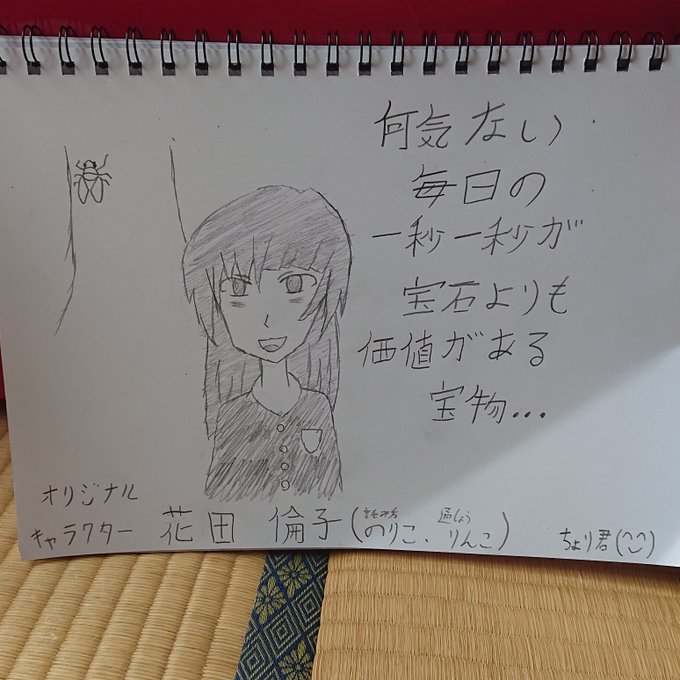 何気ない
毎日の
一秒一秒が
宝石よりも
価値がある
宝物...
オリジナル
キャラクター 花田 倫子(のりこ、りんこ)
読み方 通しょう
ちょり君(^◡^)